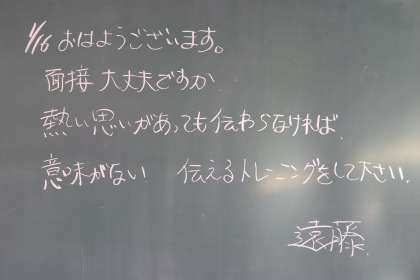 1/16 おはようございます。
面接 大丈夫ですか
熱い思いがあっても伝わらなければ
意味がない 伝えるトレーニングをして下さい.
遠藤.